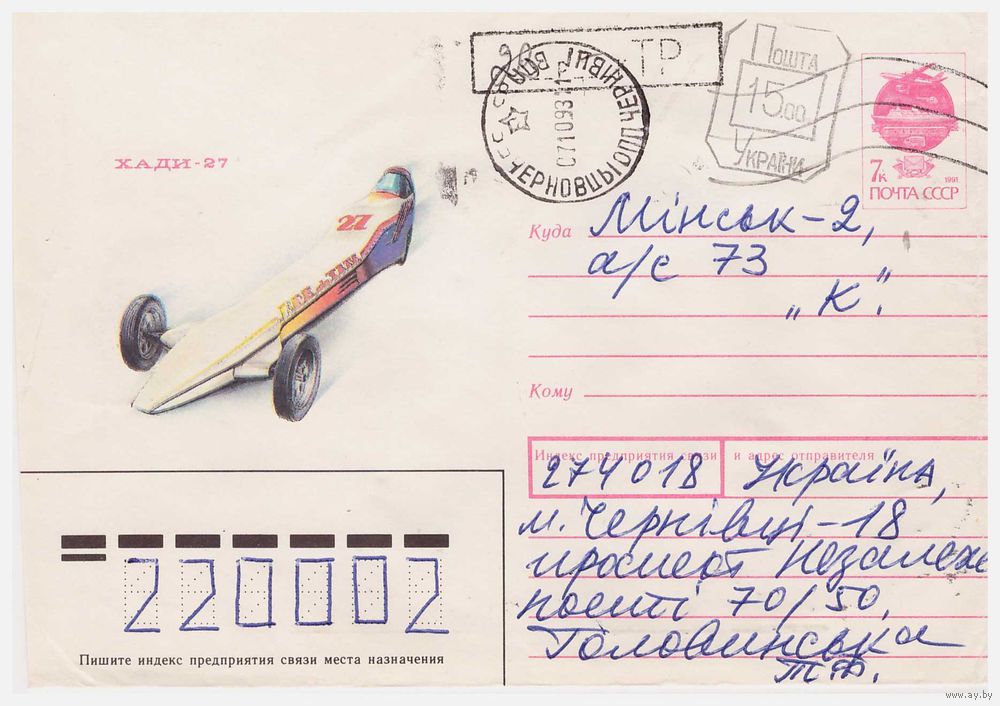 ХАДИ-27
27
ПОШТА
15.00
УКРАЇНИ
7к
1991
ПОЧТА СССР
ЧЕРНІВЦІ
071093
ЧЕРНОВЦЫ
Куда Мінськ-2,
а/с 73
„К".
Кому
Индекс предприятия связи и адрес отправителя
274018 Україна,
м. Чернівці-18
проспект Незалеж
ності 70/50,
Головинська
Т.Ф.
220002
Пишите индекс предприятия связи места назначения
www.ay.by